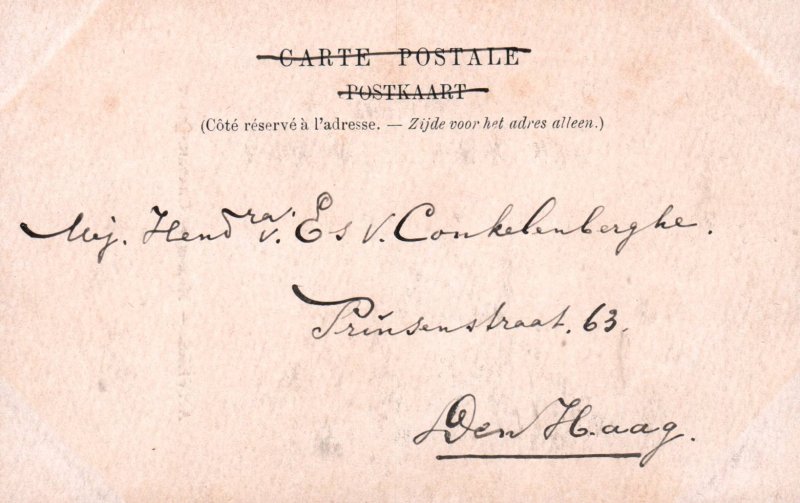 CARTE POSTALE
POSTKAART
(Côté réservé à l'adresse. — Zijde voor het adres alleen.)
Mej. Hendra v. Es v. Conkelenberghe.
Prinsenstraat. 63.
Den Haag.